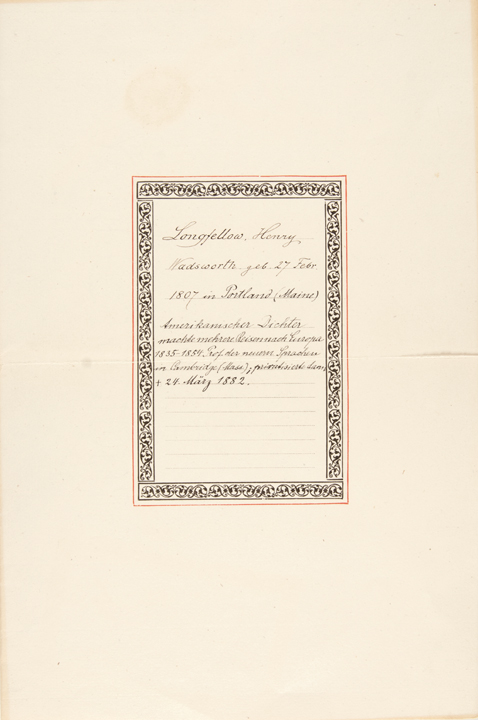 Longfellow, Henry
Wadsworth. geb. 27 Febr.
1807 in Portland (Maine)
Amerikanischer Dichter
machte mehrere Reisen nach Europa
1835-1854 Prof. der neueren Sprachen
in Cambridge (Mass), privatisierte dann
† 24. März 1882.